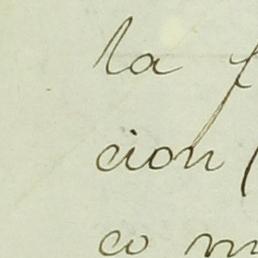 la
cion (
co